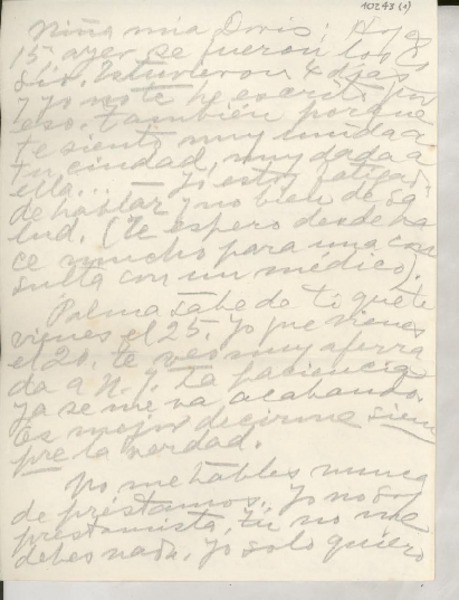 10243 (1)
Niña mía Doris: Hoy es
15, ayer se fueron los
Estuvieron 4 días
y yo no te he escrito por
eso. También porque
te siento muy unida a
tu ciudad, muy dada a
ella... — Yo estoy fatigada
de hablar y no bien de sa
lud. (Te espero desde ha
ce mucho para una con
sulta con un médico).
Palma sabe de ti que te
vienes el 25. Yo que vienes
el 20. Te veo muy aferra
da a N. Y. La paciencia
ya se me va acabando.
Es mejor decirme siem
pre la verdad.
No me hables nunca
de préstamos. Yo no soy
prestamista, tú no me
debes nada. Yo solo quiero